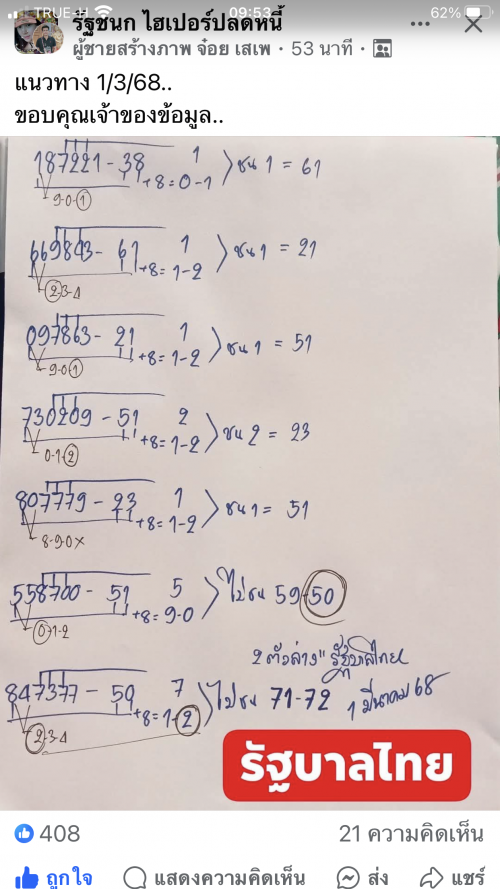 TRUE-H 09:53 62%
รัฐชนก ไฮเปอร์ปลดหนี้
ผู้ชายสร้างภาพ จ๋อย เสเพ · 53 นาที ·
แนวทาง 1/3/68..
ขอบคุณเจ้าของข้อมูล..
187221 - 38 1 ชน 1 = 61
+8 = 0-1
9-0-1
669843 - 61 1 ชน 1 = 21
+8 = 1-2
2-3-4
097863 - 21 1 ชน 1 = 51
+8 = 1-2
9-0-1
730209 - 51 2 ชน 2 = 23
+8 = 1-2
0-1-2
807779 - 23 1 ชน 1 = 51
+8 = 1-2
8-9-0x
558700 - 51 5 ไปชน 59-50
+8 = 9-0
0-1-2
2 ตัวล่าง" รัฐบาลไทย
847377 - 50 7 ไปชน 71-72 1 มีนาคม 68
+8 = 1-2
2-3-4
รัฐบาลไทย
408 21 ความคิดเห็น
ถูกใจ แสดงความคิดเห็น ส่ง แชร์